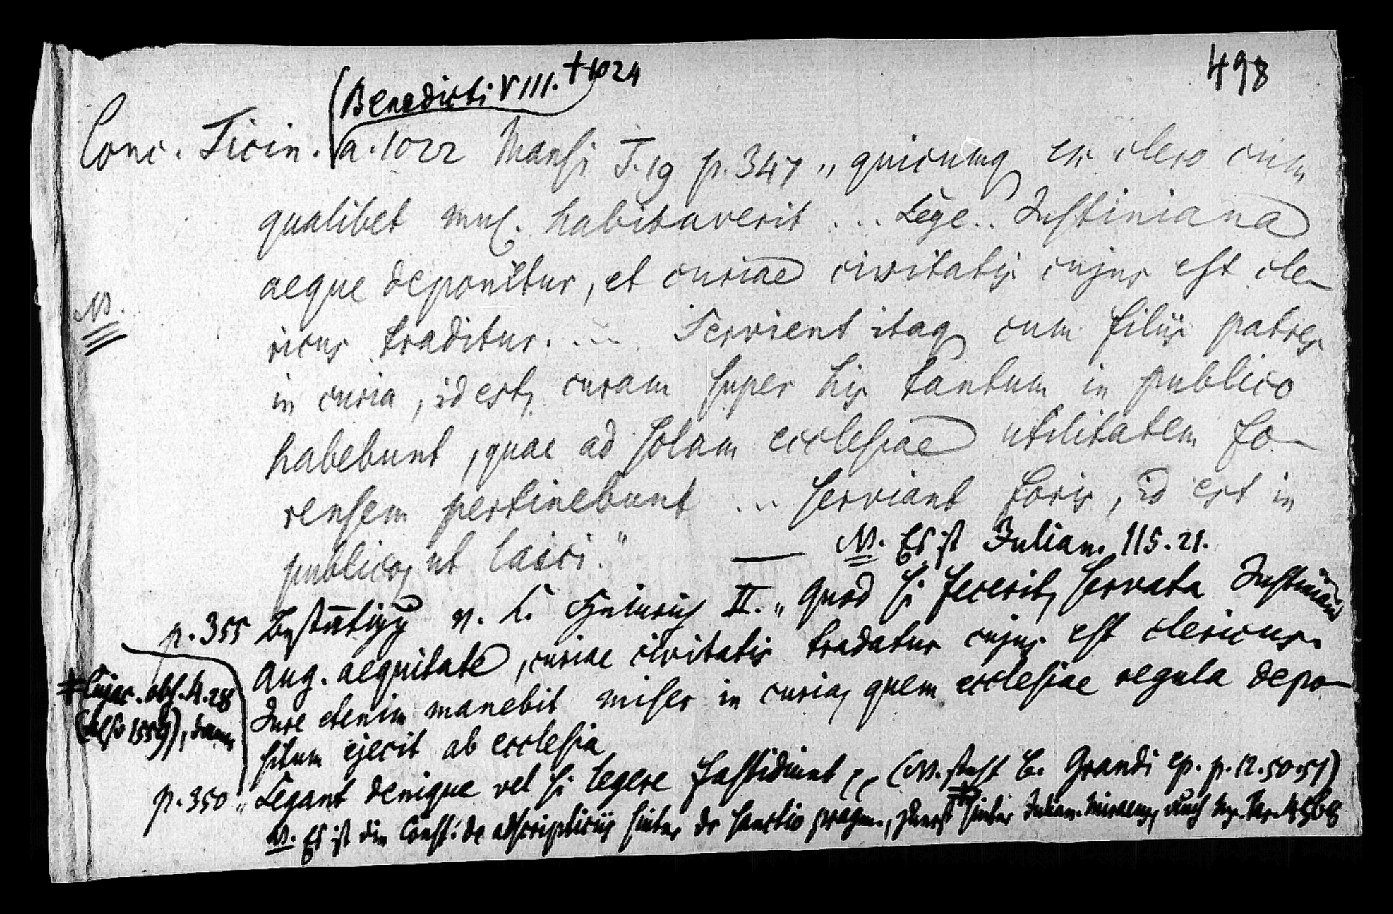 498
(Benedicti VIII. †1024
Conc. Ticin. a. 1022 Mansi T. 19 p. 347 „quicunq ex clero cum
qualibet mul. habitaverit ... Lege.. Justiniana
aeque deponitur, et curiae civitatis cujus est cle-
ricus traditur. ... Servient itaq cum filiis patres
NB.
in curia, id est, curam super his tantum in publico
habebunt, quae ad solam ecclesiae utilitatem fo-
rensem pertinebunt ... serviant foris, id est in
publico, ut laici."
— NB. Es ist Julian. 115. 21.
p. 355 Bestätigg v. K. Heinrich II. „Quod si fecerit, servata Justiniani
Aug. aequitate, curiae civitatis tradatur cujus est clericus.
Jure etenim manebit miser in curia, quem ecclesiae regula depo-
situm ejecit ab ecclesia
# Cujac. obs. 4. 28
(also 1559), dann
p. 350 „Legant denique vel si legere fastidiunt (NB. steht b. Grandi ep. p. 12. 50. 51)
NB. Es ist die Const. de adscripticiis hinter der sanctio pragm., zuerst # hinter Julian. Miraeus, auch